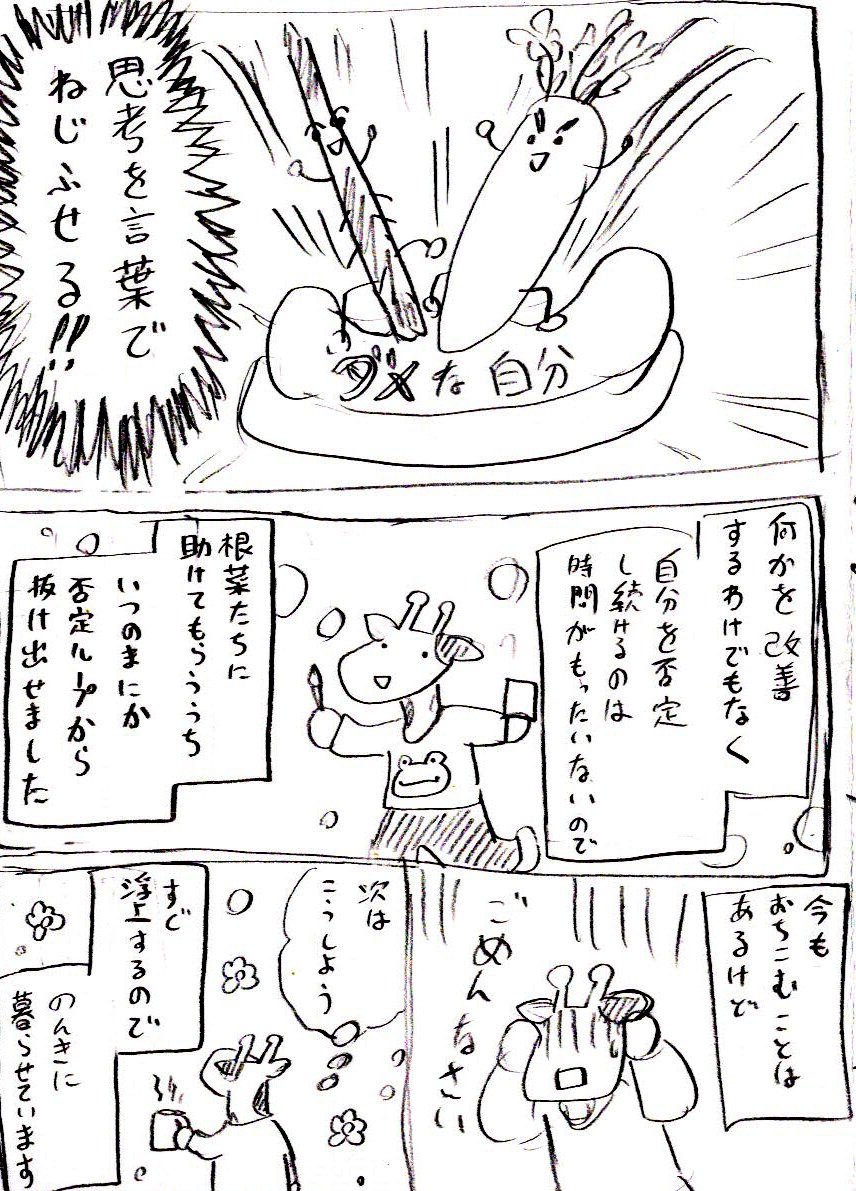 思考を言葉で
ねじふせる!!
ダメな自分
何かを改善
するわけでもなく
自分を否定
し続けるのは
時間がもったいないので
根菜たちに
助けてもらううち
いつのまにか
否定ループから
抜け出せました
今も
おちこむことは
あるけど
ごめんなさい
次は
こうしよう
すぐ
浮上するので
のんきに
暮らせています